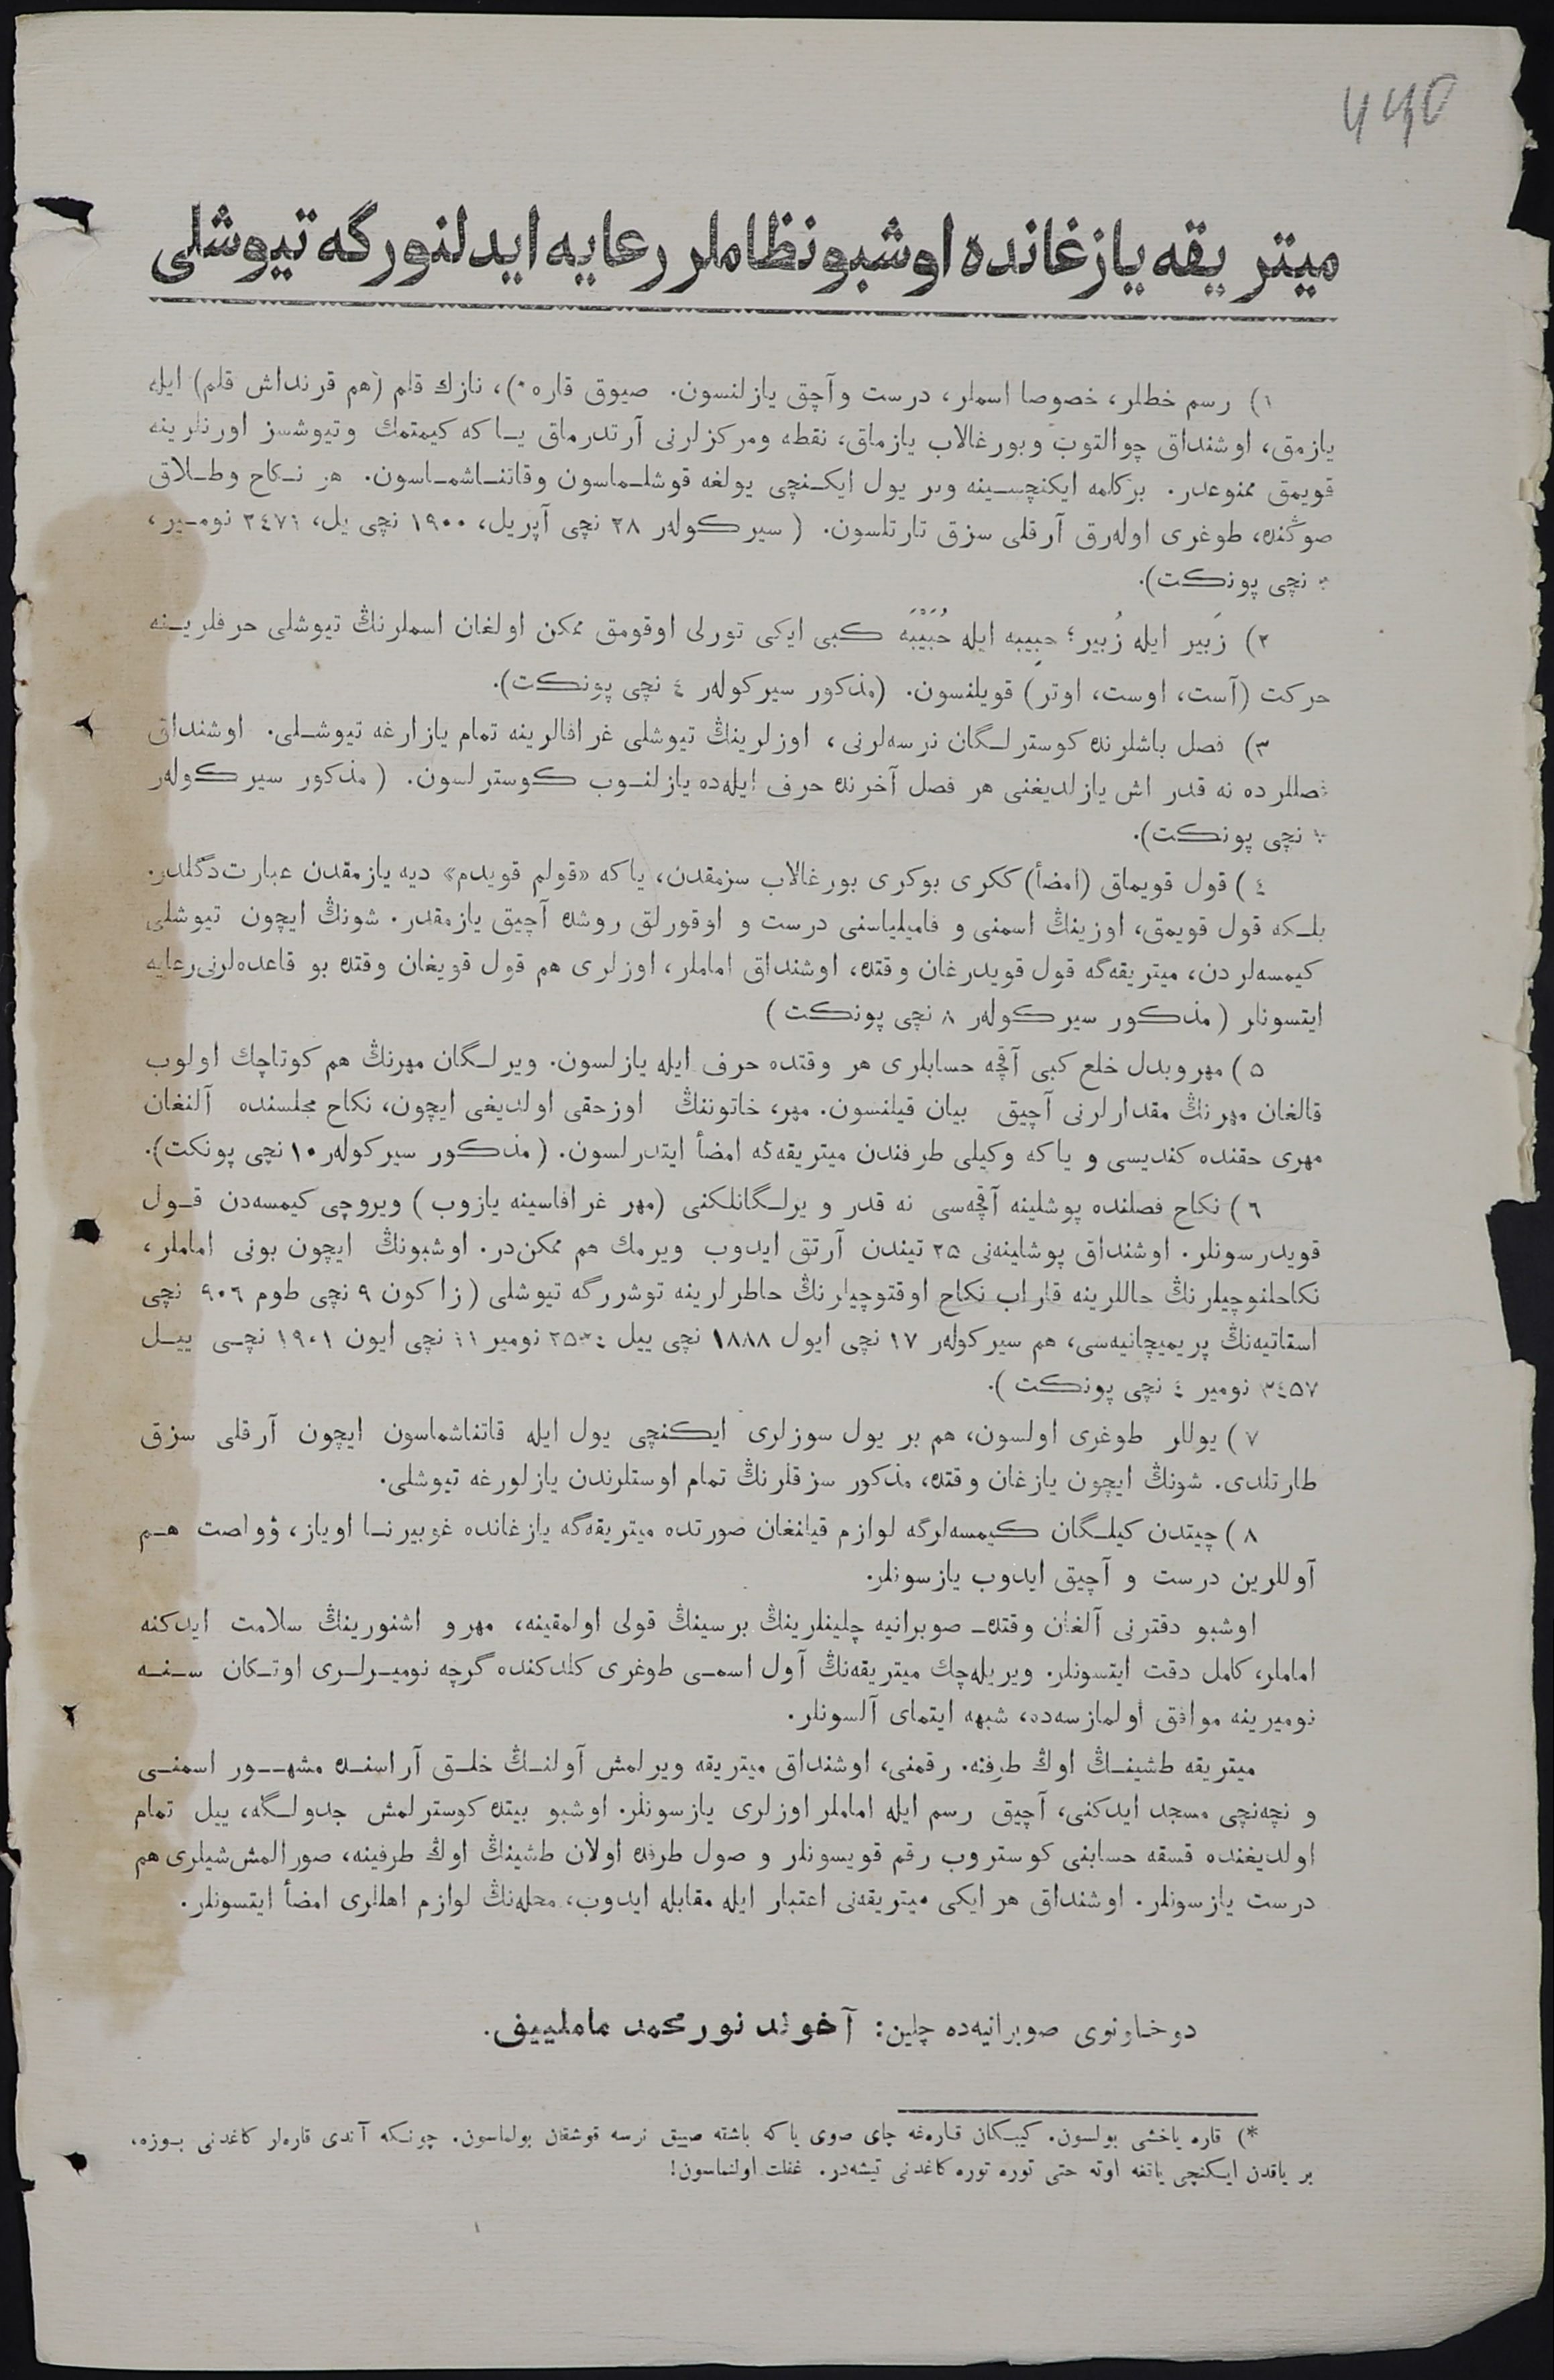 440
ميتريقه يازغانده اوشبو نظاملر رعايه ايدلنورگه تيوشلى
١) رسم خطلر، خصوصا اسملر، درست وآچق يازلنسون. صيوق قاره *)، نازك قلم (هم قرنداش قلم) ايله
يازمق، اوشنداق چوالتوب وبورغالاب يازماق، نقطه ومركزلرنى آرتدرماق يــاكه كيمتمك وتيوشسز اورنلرينه
قويمق ممنوعدر. بركلمه ايكنچســينه وبر يول ايكــنچى يولغه قوشلــماسون وقاتنــاشمــاسون. هر نــكاح وطــلاق
صوڭنده، طوغرى اولەرق آرقلى سزق تارتلسون. (سيركولەر ٢٨ نچى آپريل، ١٩٠٠ نچى يل، ٢٤٧١ نوميـر،
نچى پونكت).
٢) زَبير ايله زُبير؛ حبِيبه ايله حُبَيْبَه كبى ايكى تورلى اوقومق ممكن اولغان اسملرنڭ تيوشلى حرفلريــنه
حركت (آست، اوست، اوتر) قويلنسون. (مذكور سيركولەر ٤ نچى پونكت).
٣) فصل باشلرنده كوسترلــگان نرسەلرنى، اوزلرينڭ تيوشلى غرافالرينه تمام يازارغه تيوشــلى. اوشنداق
فصللرده نه قدر اش يازلديغنى هر فصل آخرنده حرف ايلەده يازلنــوب كوسترلسون. (مذكور سيركولەر
نچى پونكت).
٤) قول قويماق (امضأ) ككرى بوكرى بورغالاب سزمقدن، ياكه «قولم قويدم» ديه يازمقدن عبارت دگلدر.
بلــكه قول قويمق، اوزينڭ اسمنى و فاميلياسنى درست و اوقورلق روشده آچيق يازمقدر. شونڭ ايچون تيوشلى
كيمسەلردن، ميتريقەگه قول قويدرغان وقتده، اوشنداق اماملر، اوزلرى هم قول قويغان وقتده بو قاعدەلرنى رعايه
ايتسونلر (مذكور سيركولەر ٨ نچى پونكت)
٥) مهروبدل خلع كبى آقچه حسابلرى هر وقتده حرف ايله يازلسون. ويرلــگان مهرنڭ هم كوتاچك اولوب
قالغان مهرنڭ مقدارلرنى آچيق بيان قيلنسون. مهر، خاتوننڭ اوزحقى اولديغى ايچون، نكاح مجلسنده آلنغان
مهرى حقنده كنديسى و ياكه وكيلى طرفندن ميتريقەگه امضأ ايتدرلسون. (مذكور سيركولەر ١٠ نچى پونكت).
٦) نكاح فصلنده پوشلينه آقچەسى نه قدر ويرلــگانلكنى (مهر غرافاسينه يازوب) ويروچى كيمسەدن قــول
قويدرسونلر. اوشنداق پوشلينەنى ٢٥ تيندن آرتق ايدوب ويرمك هم ممكن در. اوشبونڭ ايچون بونى اماملر،
نكاحلنوچيلرنڭ حاللرينه قاراب نكاح اوقتوچيلرنڭ خاطرلرينه توشررگه تيوشلى (زاكون ٩ نچى طوم ٩٠٦ نچى
استاتيەنڭ پريميچانيەسى، هم سيركولەر ١٧ نچى ايول ١٨٨٨ نچى ييل نومير ١١ نچى ايون ١٩٠١ نچــى ييــل
٣٤٥٧ نومير ٤ نچى پونكت).
٧) يوللر طوغرى اولسون، هم بر يول سوزلرى ايكنچى يول ايله قاتناشماسون ايچون آرقلى سزق
طارتلدى. شونڭ ايچون يازغان وقتده، مذكور سزقلرنڭ تمام اوستلرندن يازلورغه تيوشلى.
٨) چيتدن كيلــگان كيمسەلرگه لوازم قيلنغان صورتده ميتريقەگه يازغانده غوبيرنــا اوياز، ۋواصت هــم
آوللرين درست و آچيق ايدوب يازسونلر.
اوشبو دفترنى آلغان وقتده صوبرانيه چلينلرينڭ برسينڭ قولى اولمقينه، مهر و اشنورينڭ سلامت ايدكنه
اماملر، كامل دقت ايتسونلر. ويريلەچك ميتريقەنڭ آول اسمــى طوغرى كلدكنده گرچه نوميــرلــرى اوتــكان ســنــه
نوميرينه موافق اولمازسەده، شبهه ايتماى آلسونلر.
ميتريقه طشينــڭ اوڭ طرفنه. رقمنى، اوشنداق ميتريقه ويرلمش آولنــڭ خلــق آراسنــده مشهــور اسمنــى
و نچەنچى مسجد ايدكنى، آچيق رسم ايله اماملر اوزلرى يازسونلر. اوشبو بيتده كوسترلمش جدولــگه، ييل تمام
اولديغنده قسقه حسابنى كوستروب رقم قويسونلر و صول طرفده اولان طشينڭ اوڭ طرفينه، صورالمش شيلرى هم
درست يازسونلر. اوشنداق هر ايكى ميتريقەنى اعتبار ايله مقابله ايدوب، محلەنڭ لوازم اهللرى امضأ ايتسونلر.
دوخاونوى صوبرانيەده چلين: آخوند نورمحمد ماملييف.
*) قاره ياخشى بولسون. كيبــكان قارەغه چاى صوى ياكه باشقه صييق نرسه قوشقان بولماسون. چونــكه آندى قارەلر كاغدنى بــوزه،
بر ياقدن ايــكنچى ياتغه اوته حتى توره توره كاغدنى تيشەدر. غفلت اولنماسون!